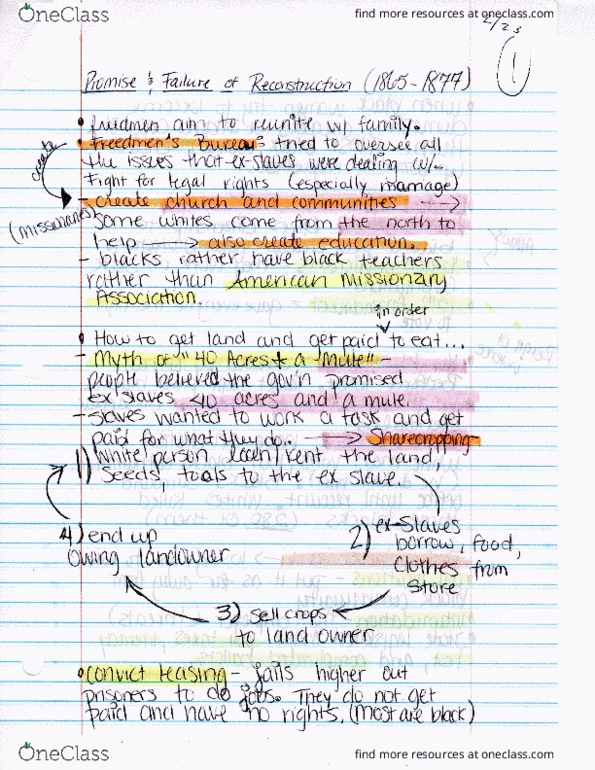 OneClass
find more resources at oneclass.com
2/23
1
Promise & Failure of Reconstruction (1865-1877)
• freedmen aim to reunite w/ family.
• Freedmen's Bureau: tried to oversee all
the issues that ex-slaves were dealing w/..
Fight for legal rights (especially marriage)
create
- create church and communities →
(missionaries)
some whites come from the north to
help → also create education.
- blacks rather have black teachers
rather than American Missionary
Association.
in order
• How to get land and get paid to eat...
- Myth of "40 Acres & a Mule" -
people believed the gov'n promised
ex slaves 40 acres and a mule.
- slaves wanted to work a task and get
paid for what they do. → Sharecropping
1) White person loan/rent the land,
seeds, tools to the ex slave.
2) ex-slaves
borrow, food,
clothes from
store
3) sell crops
to land owner
4) end up
owing landowner
• Convict leasing - jails higher out
prisoners to do jobs. They do not get
paid and have no rights. (Most are black)
OneClass
find more resources at oneclass.com